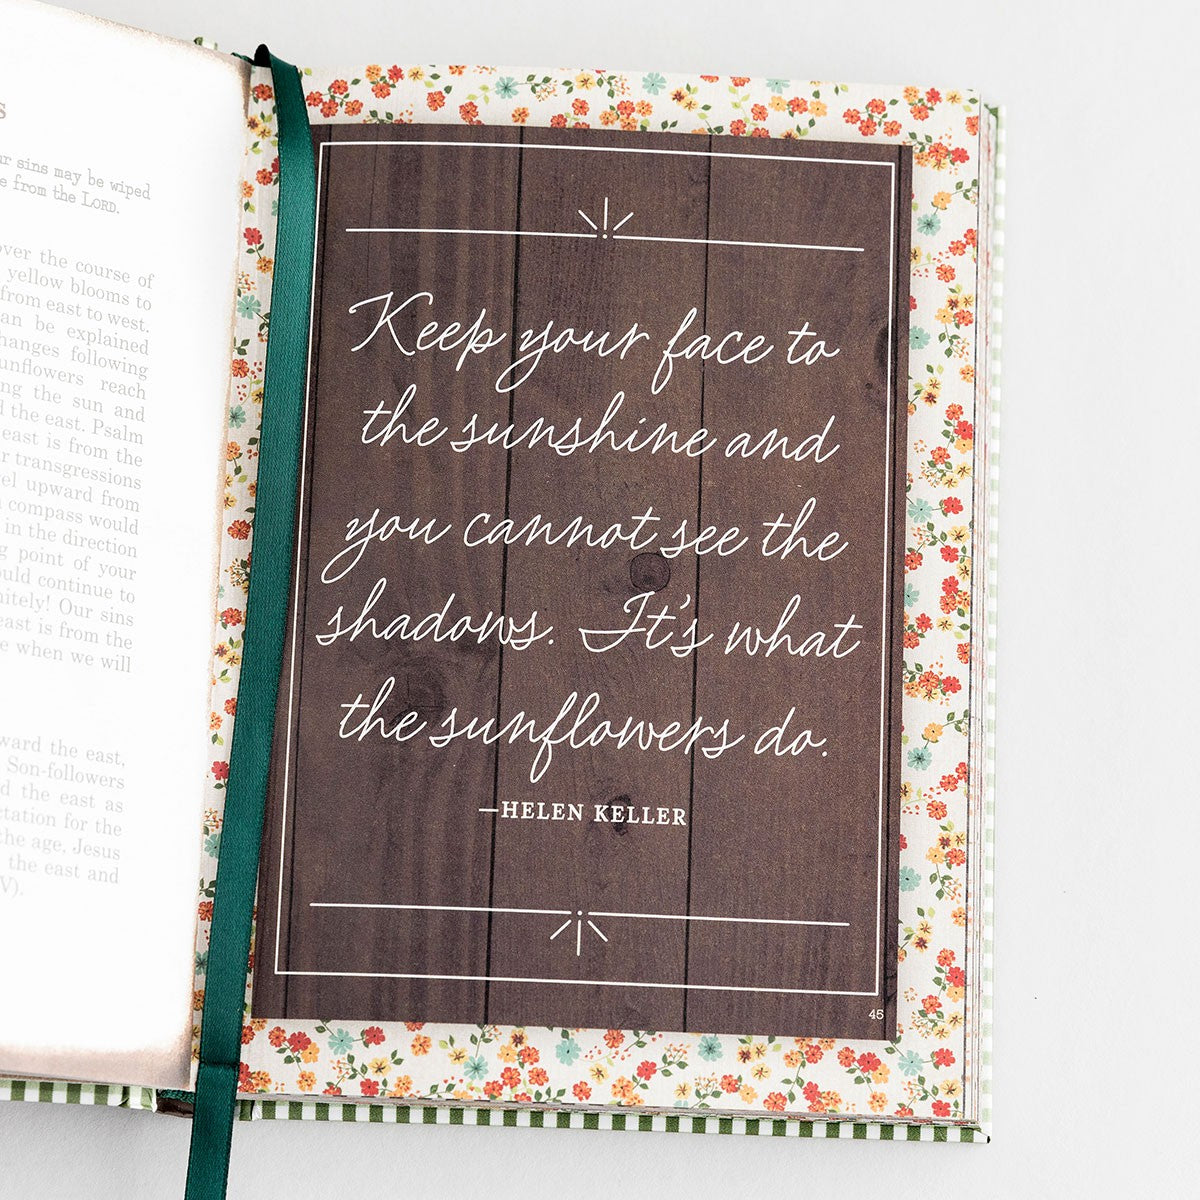 s
ur sins may be wiped
e from the LORD.
over the course of
yellow blooms to
from east to west.
can be explained
hanges following
unflowers reach
ing the sun and
d the east. Psalm
east is from the
r transgressions
vel upward from
compass would
in the direction
ng point of your
ould continue to
nitely! Our sins
east is from the
e when we will
ward the east,
Son-followers
d the east as
ctation for the
the age. Jesus
the east and
V).
Keep your face to
the sunshine and
you cannot see the
shadows. It's what
the sunflowers do.
—HELEN KELLER
45